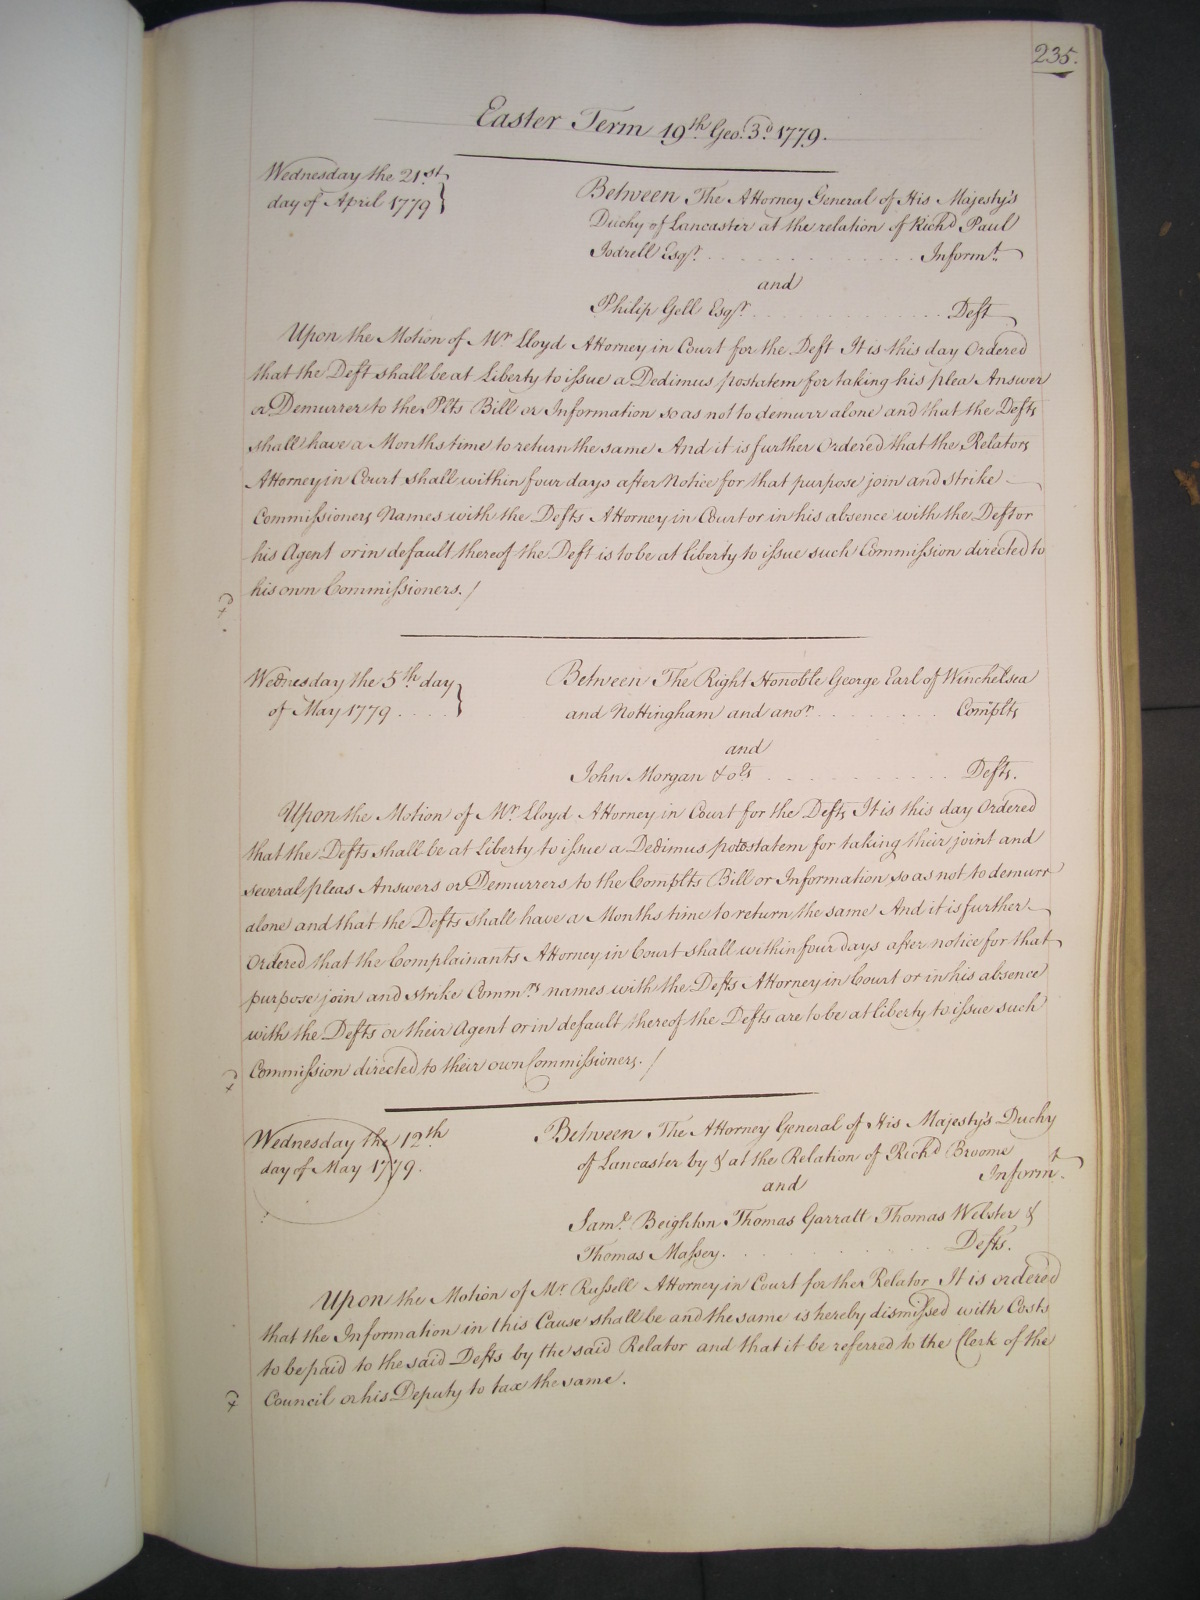 235.
Easter Term 19th Geo. 3d 1779.
Wednesday the 21st
day of April 1779
Between The Attorney General of His Majesty's
Duchy of Lancaster at the relation of Richd Paul
Jodrell Esqr. . . . . . . . . . . . . . . Informt
and
Philip Gell Esqr. . . . . . . . . . . . . . Deft
Upon the Motion of Mr Lloyd Attorney in Court for the Deft It is this day Ordered
that the Deft shall be at Liberty to issue a Dedimus postatem for taking his plea Answer
or Demurrer to the Plts Bill or Information so as not to demurr alone and that the Defts
shall have a Months time to return the same And it is further Ordered that the Relators
Attorney in Court shall within four days after Notice for that purpose join and strike
Commissioners Names with the Defts Attorney in Court or in his absence with the Deft or
his Agent or in default thereof the Deft is to be at liberty to issue such Commission directed to
his own Commissioners. /
Wednesday the 5th day
of May 1779 . . . .
Between The Right Honoble George Earl of Winchelsea
and Nottingham and anor . . . . . . . . Complts
and
John Morgan & ors . . . . . . . . . . . Defts.
Upon the Motion of Mr Lloyd Attorney in Court for the Defts It is this day Ordered
that the Defts shall be at Liberty to issue a Dedimus potostatem for taking their joint and
several pleas Answers or Demurrers to the Complts Bill or Information so as not to demurr
alone and that the Defts shall have a Months time to return the same And it is further
Ordered that the Complainants Attorney in Court shall within four days after notice for that
purpose join and strike Commrs names with the Defts Attorney in Court or in his absence
with the Defts or their Agent or in default thereof the Defts are to be at liberty to issue such
Commission directed to their own Commissioners. /
Wednesday the 12th
day of May 1779.
Between The Attorney General of His Majesty's Duchy
of Lancaster by & at the Relation of Richd Broome
Informt.
and
Saml. Beighton Thomas Garratt Thomas Webster &
Thomas Massey. . . . . . . . . . . . Defts.
Upon the Motion of Mr Russell Attorney in Court for the Relator It is ordered
that the Information in this Cause shall be and the same is hereby dismissed with Costs
to be paid to the said Defts by the said Relator and that it be referred to the Clerk of the
Council or his Deputy to tax the same.